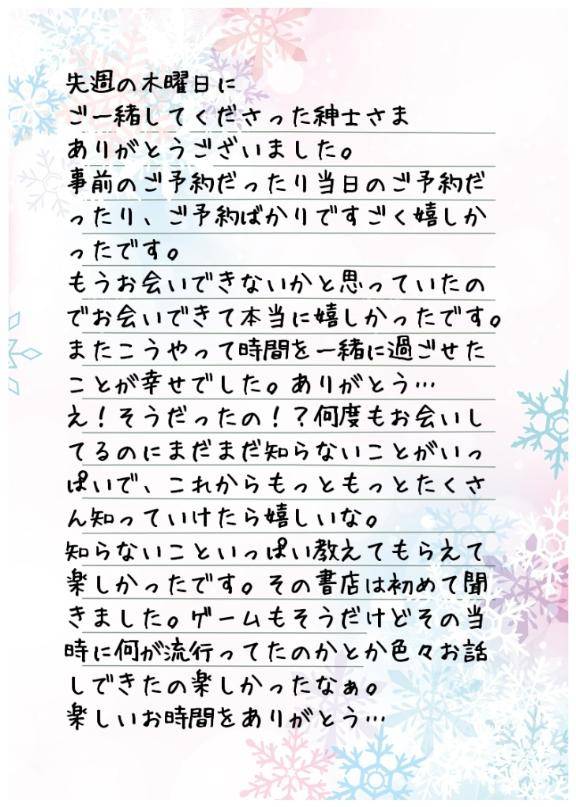 先週の木曜日に
ご一緒してくださった紳士さま
ありがとうございました。
事前のご予約だったり当日のご予約だ
ったり、ご予約ばかりですごく嬉しか
ったです。
もうお会いできないかと思っていたの
でお会いできて本当に嬉しかったです。
またこうやって時間を一緒に過ごせた
ことが幸せでした。ありがとう…
え！そうだったの！？何度もお会いし
てるのにまだまだ知らないことがいっ
ぱいで、これからもっともっとたくさ
ん知っていけたら嬉しいな。
知らないこといっぱい教えてもらえて
楽しかったです。その書店は初めて聞
きました。ゲームもそうだけどその当
時に何が流行ってたのかとか色々お話
しできたの楽しかったなぁ。
楽しいお時間をありがとう…